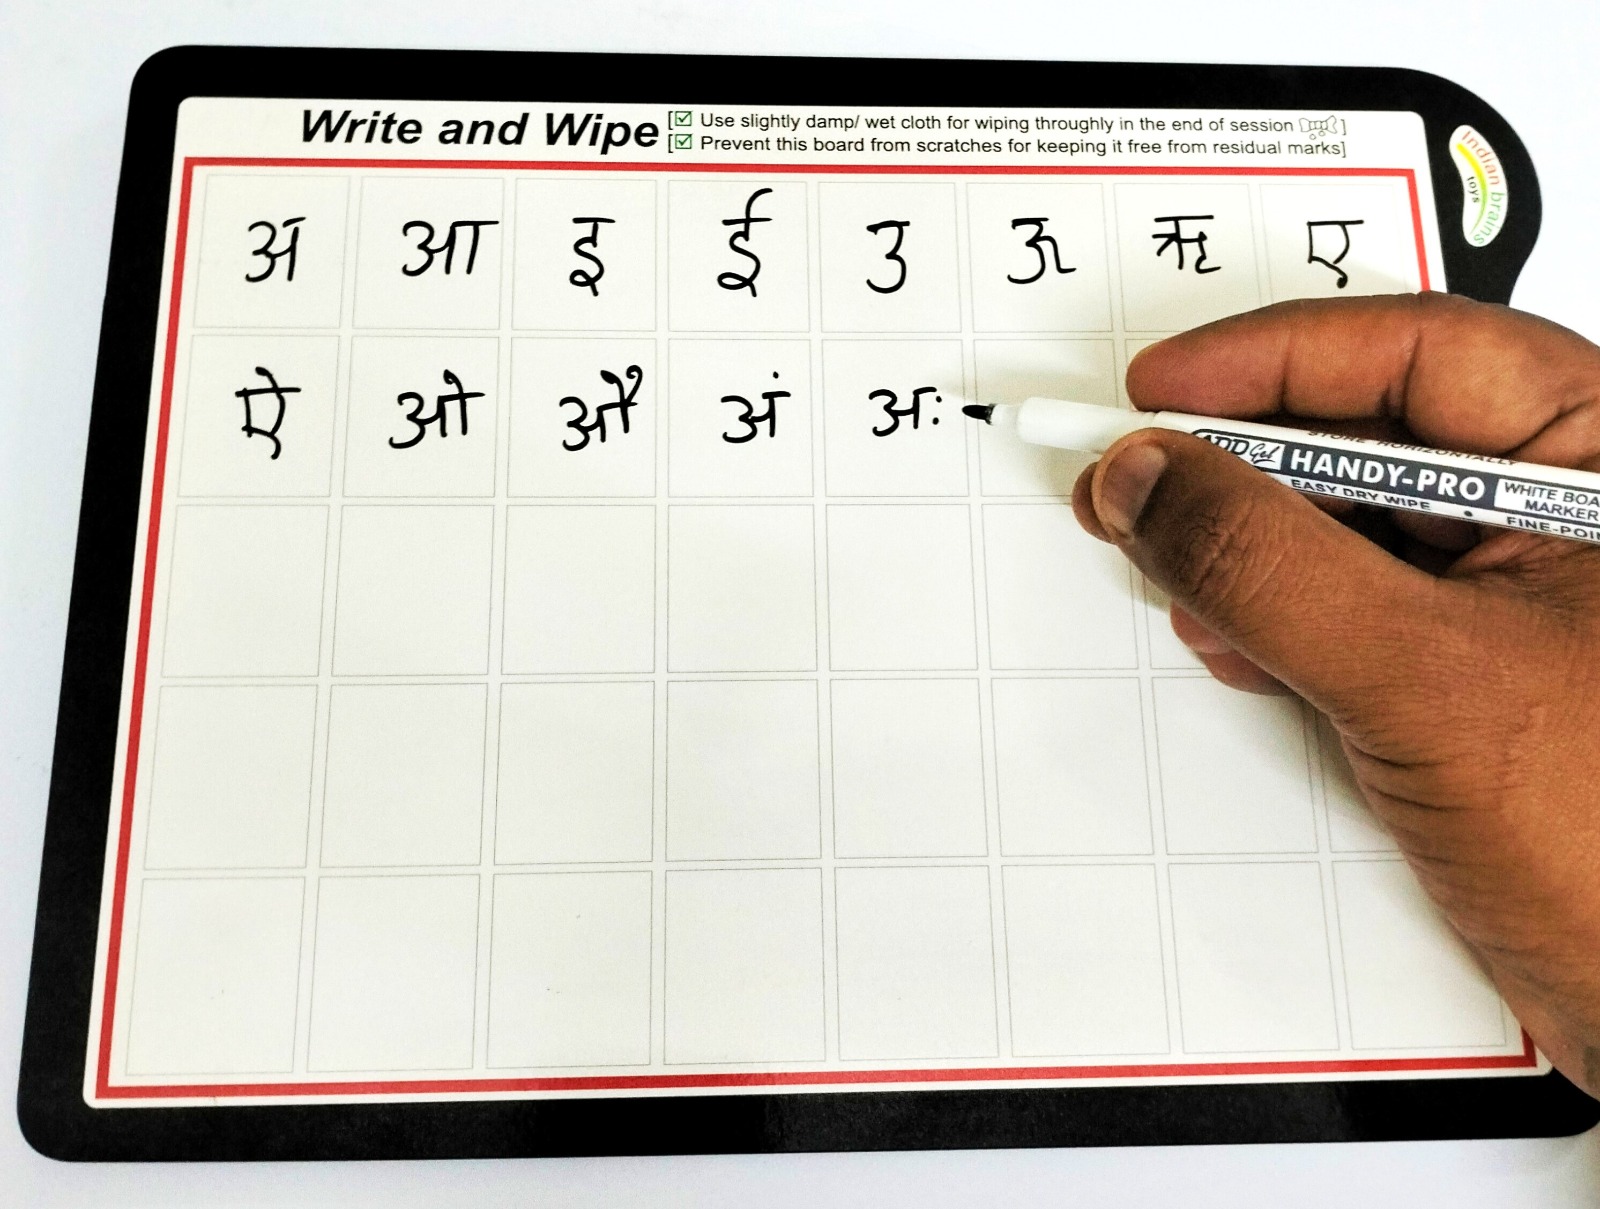 Write and Wipe
[☑ Use slightly damp/ wet cloth for wiping throughly in the end of session ]
[☑ Prevent this board from scratches for keeping it free from residual marks]
indian brains
toys
अ आ इ ई उ ऊ ऋ ए
ऐ ओ औ अं अः
STORE HORIZONTALLY
ADD Gel HANDY-PRO WHITE BOA
MARKER
EASY DRY WIPE • FINE-POI